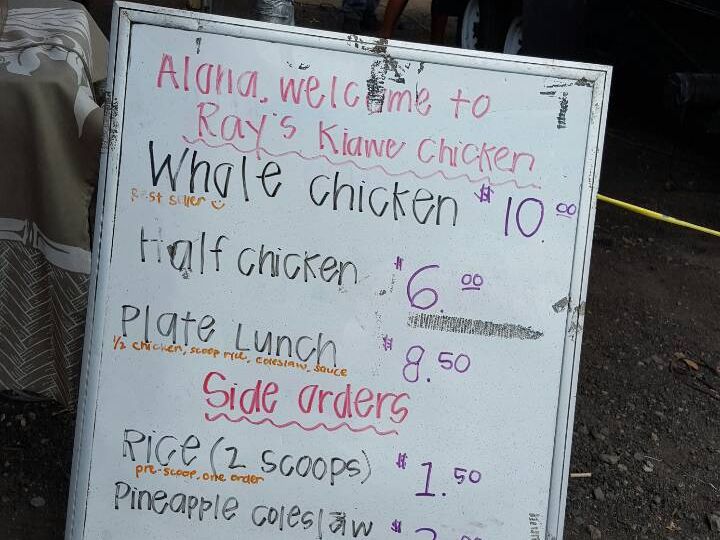 Alana, welcome to
Ray's Kiawe Chicken
Whole chicken $10.00
Best seller
Half chicken $6.00
Plate Lunch $8.50
1/2 chicken, scoop rice, coleslaw, sauce
Side orders
Rice (2 scoops) $1.50
pre-scoop, one order
Pineapple coleslaw $